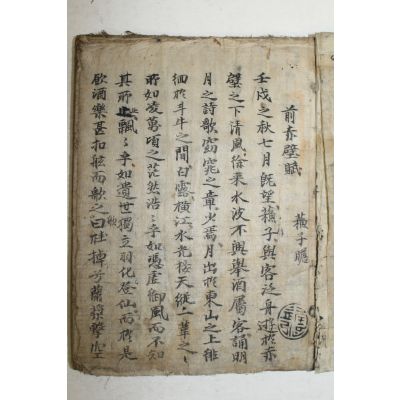 前赤壁賦
蘇子瞻
壬戌之秋七月旣望蘇子與客泛舟游於赤
壁之下清風徐來水波不興擧酒属客誦明
月之詩歌窈窕之章少焉月出於東山之上徘
徊於斗牛之間白露橫江水光接天縱一葦之
所如凌萬頃之茫然浩〻乎如憑虛御風而不知
其所止飄〻乎如遺世獨立羽化登仙而於是
飮酒樂甚扣舷而歌之歌曰桂棹兮蘭槳擊空